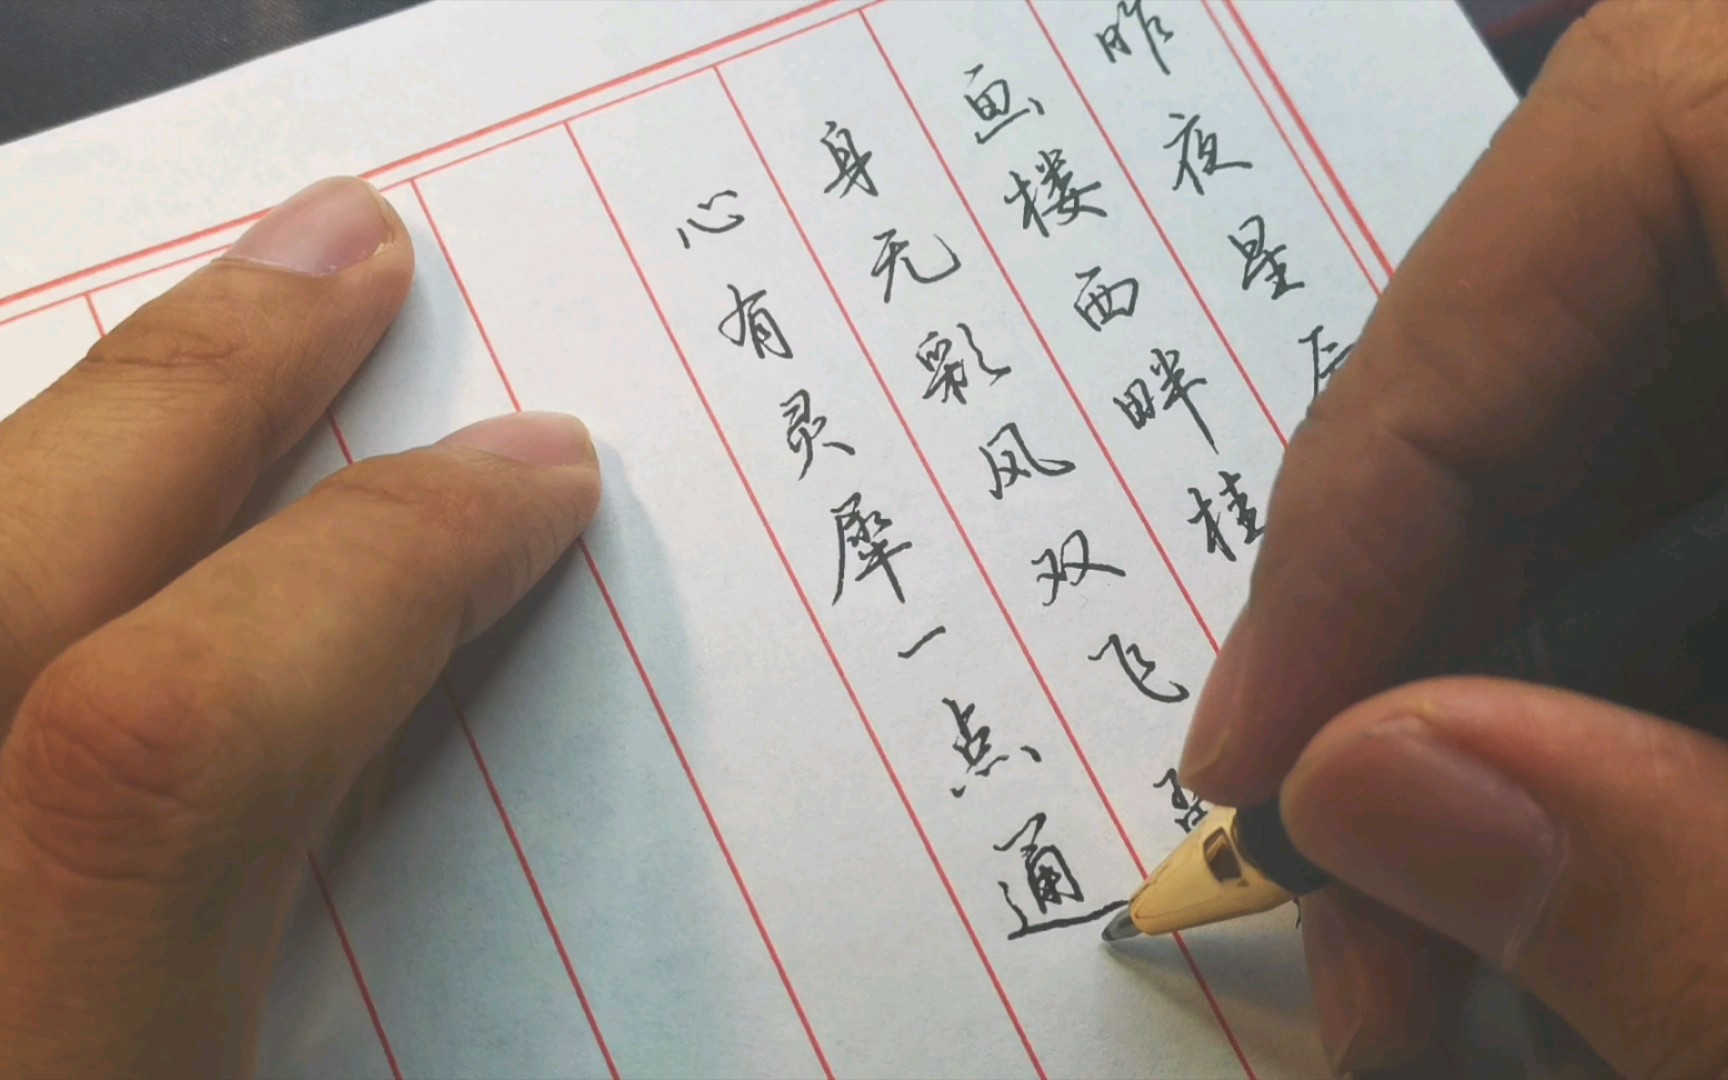 昨夜星辰
画楼西畔桂
身无彩凤双飞翼
心有灵犀一点通